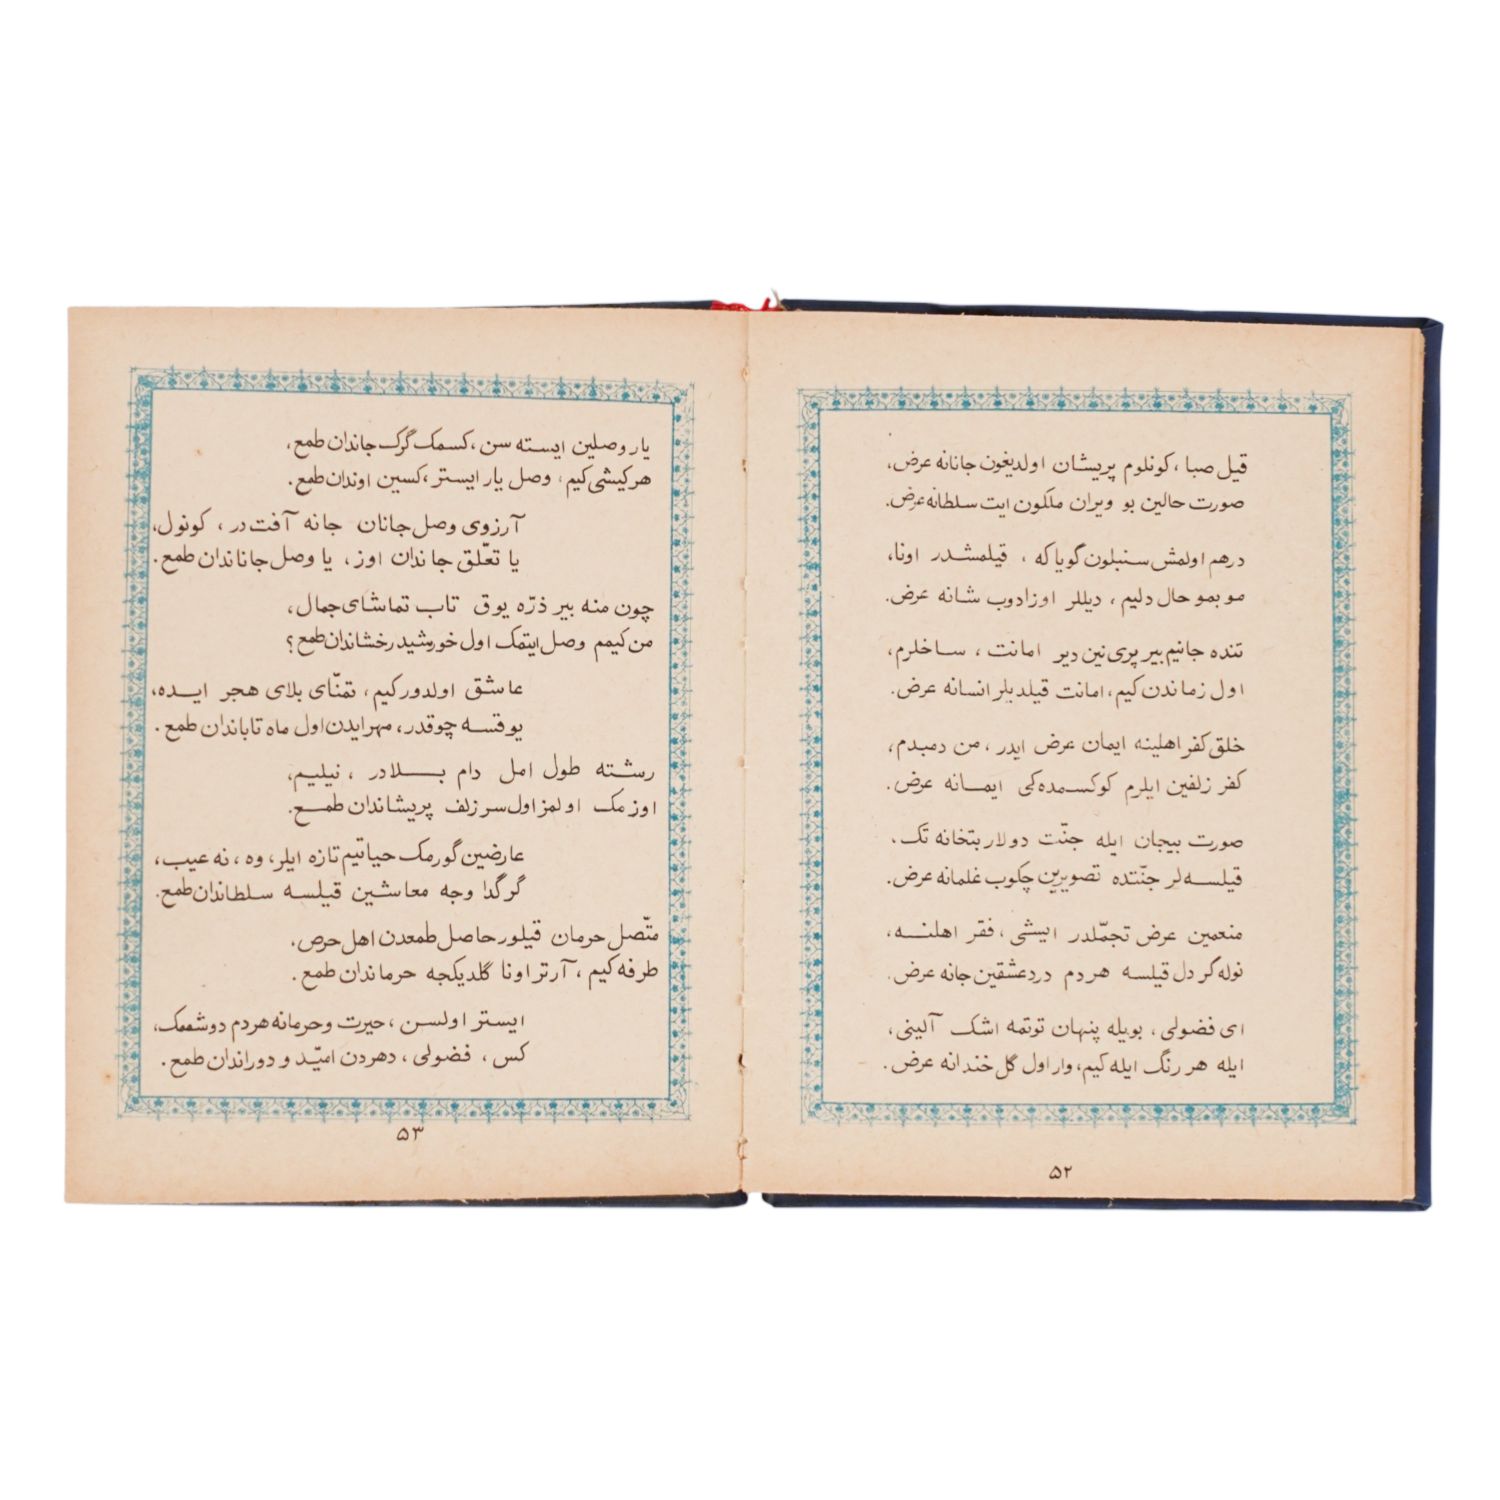 قیل صبا ، کونلوم پریشان اولدیغون جانانه عرض،
صورت حالین بو ویران ملکون ایت سلطانه عرض.
درهم اولمش سنبلون گویا که ، قیلمشدر اونا،
مو بمو حال دلیم ، دیللر اوزادوب شانه عرض.
تنده جانیم بیر پری نین دیر امانت ، ساخلرم،
اول زماندن کیم، امانت قیلدیلر انسانه عرض.
خلق کفر اهلینه ایمان عرض ایدر ، من دمبدم،
کفر زلفین ایلرم کوکسمده کی ایمانه عرض.
صورت بیجان ایله جنّت دولار بتخانه تک،
قیلسه لر جنّتده تصویرین چکوب غلمانه عرض.
منعمین عرض تجمّلدر ایشی ، فقر اهلنه،
نوله گر دل قیلسه هردم دردعشقین جانه عرض.
ای فضولی ، بویله پنهان توتمه اشک آلینی،
ایله هر رنگ ایله کیم، وار اول گل خندانه عرض.
۵۲
یار وصلین ایسته سن ، کسمک گرک جاندان طمع،
هر کیشی کیم ، وصل یار ایستر، کسین اوندان طمع.
آرزوی وصل جانان جانه آفت در ، کونول،
یا تعّلق جاندان اوز ، یا وصل جاناندان طمع.
چون منه بیر ذرّه یوق تاب تماشای جمال،
من کیمم وصل ایتمک اول خورشید رخشاندان طمع؟
عاشق اولدور کیم، تمنّای بلای هجر ایده،
یوقسه چوقدر، مهر ایدن اول ماه تاباندان طمع.
رشته طول امل دام بلادر ، نیلیم،
اوزمک اولمز اول سر زلف پریشاندان طمع.
عارضین گورمک حیاتیم تازه ایلر، وه ، نه عیب،
گر گدا وجه معاشین قیلسه سلطاندان طمع.
متّصل حرمان قیلور حاصل طمعدن اهل حرص،
طرفه کیم ، آرتر اونا گلدیکجه حرماندان طمع.
ایستر اولسن ، حیرت و حرمانه هردم دوشممک،
کس ، فضولی ، دهردن امیّد و دوراندان طمع.
۵۳